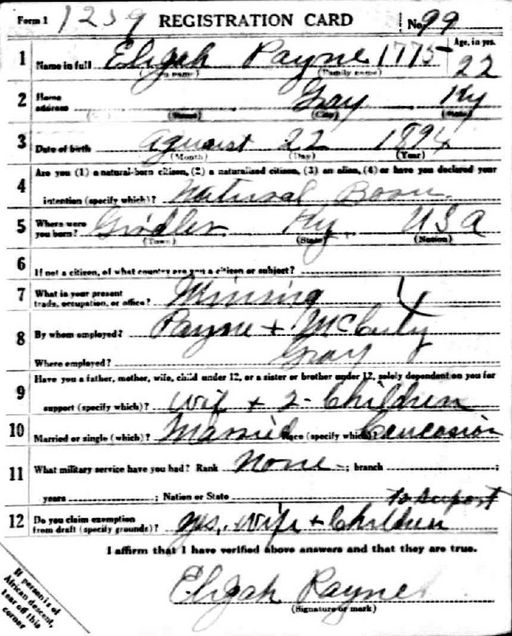 Form 1 1259 REGISTRATION CARD No. 99
1 Name in full Elijah Payne 1775 Age, in yrs. 22
(Family name)
2 Home address Gray Ky
(Street) (City) (State)
3 Date of birth August 22 1894
(Month) (Day) (Year)
4 Are you (1) a natural-born citizen, (2) a naturalized citizen, (3) an alien, (4) or have you declared your
intention (specify which)? Natural Born
5 Where were you born? Girdler Ky USA
(Town) (State) (Nation)
6 If not a citizen, of what country are you a citizen or subject?
7 What is your present trade, occupation, or office? Mining 4
8 By whom employed? Payne + McCarty
Where employed? Gray
9 Have you a father, mother, wife, child under 12, or a sister or brother under 12, solely dependent on you for
support (specify which)? wif + 2 - Children
10 Married or single (which)? Married Race (specify which)? Caucasion
11 What military service have you had? Rank None ; branch ;
years ; Nation or State to suport
12 Do you claim exemption from draft (specify grounds)? yes, wife + Children
I affirm that I have verified above answers and that they are true.
Elijah Payne
(Signature or mark)
If person is of
African descent,
tear off this
corner